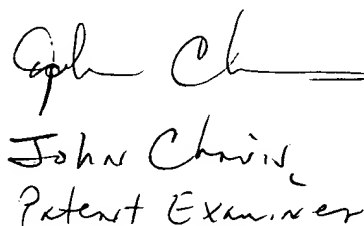 John Chavis,
Patent Examiner